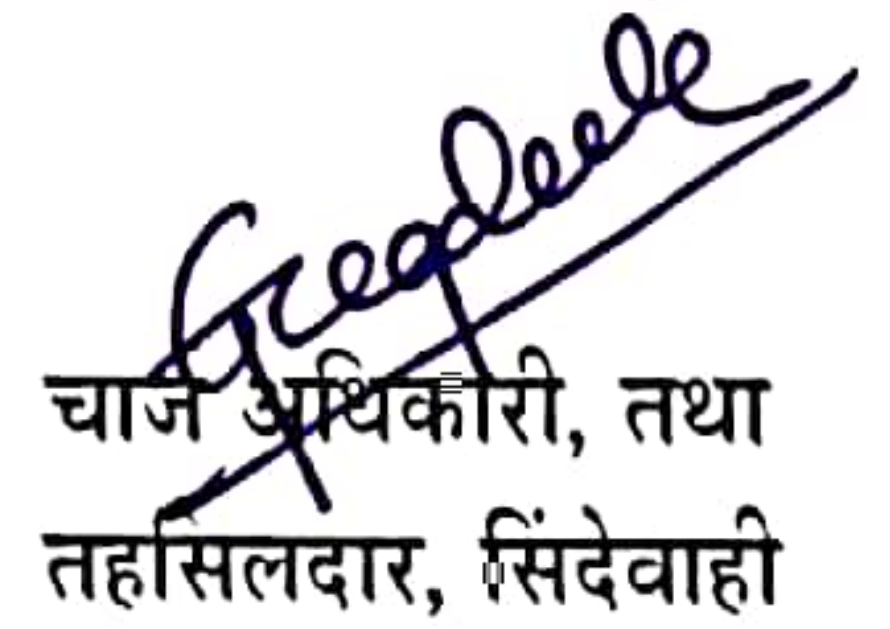 चार्ज अधिकारी, तथा
तहसिलदार, सिंदेवाही